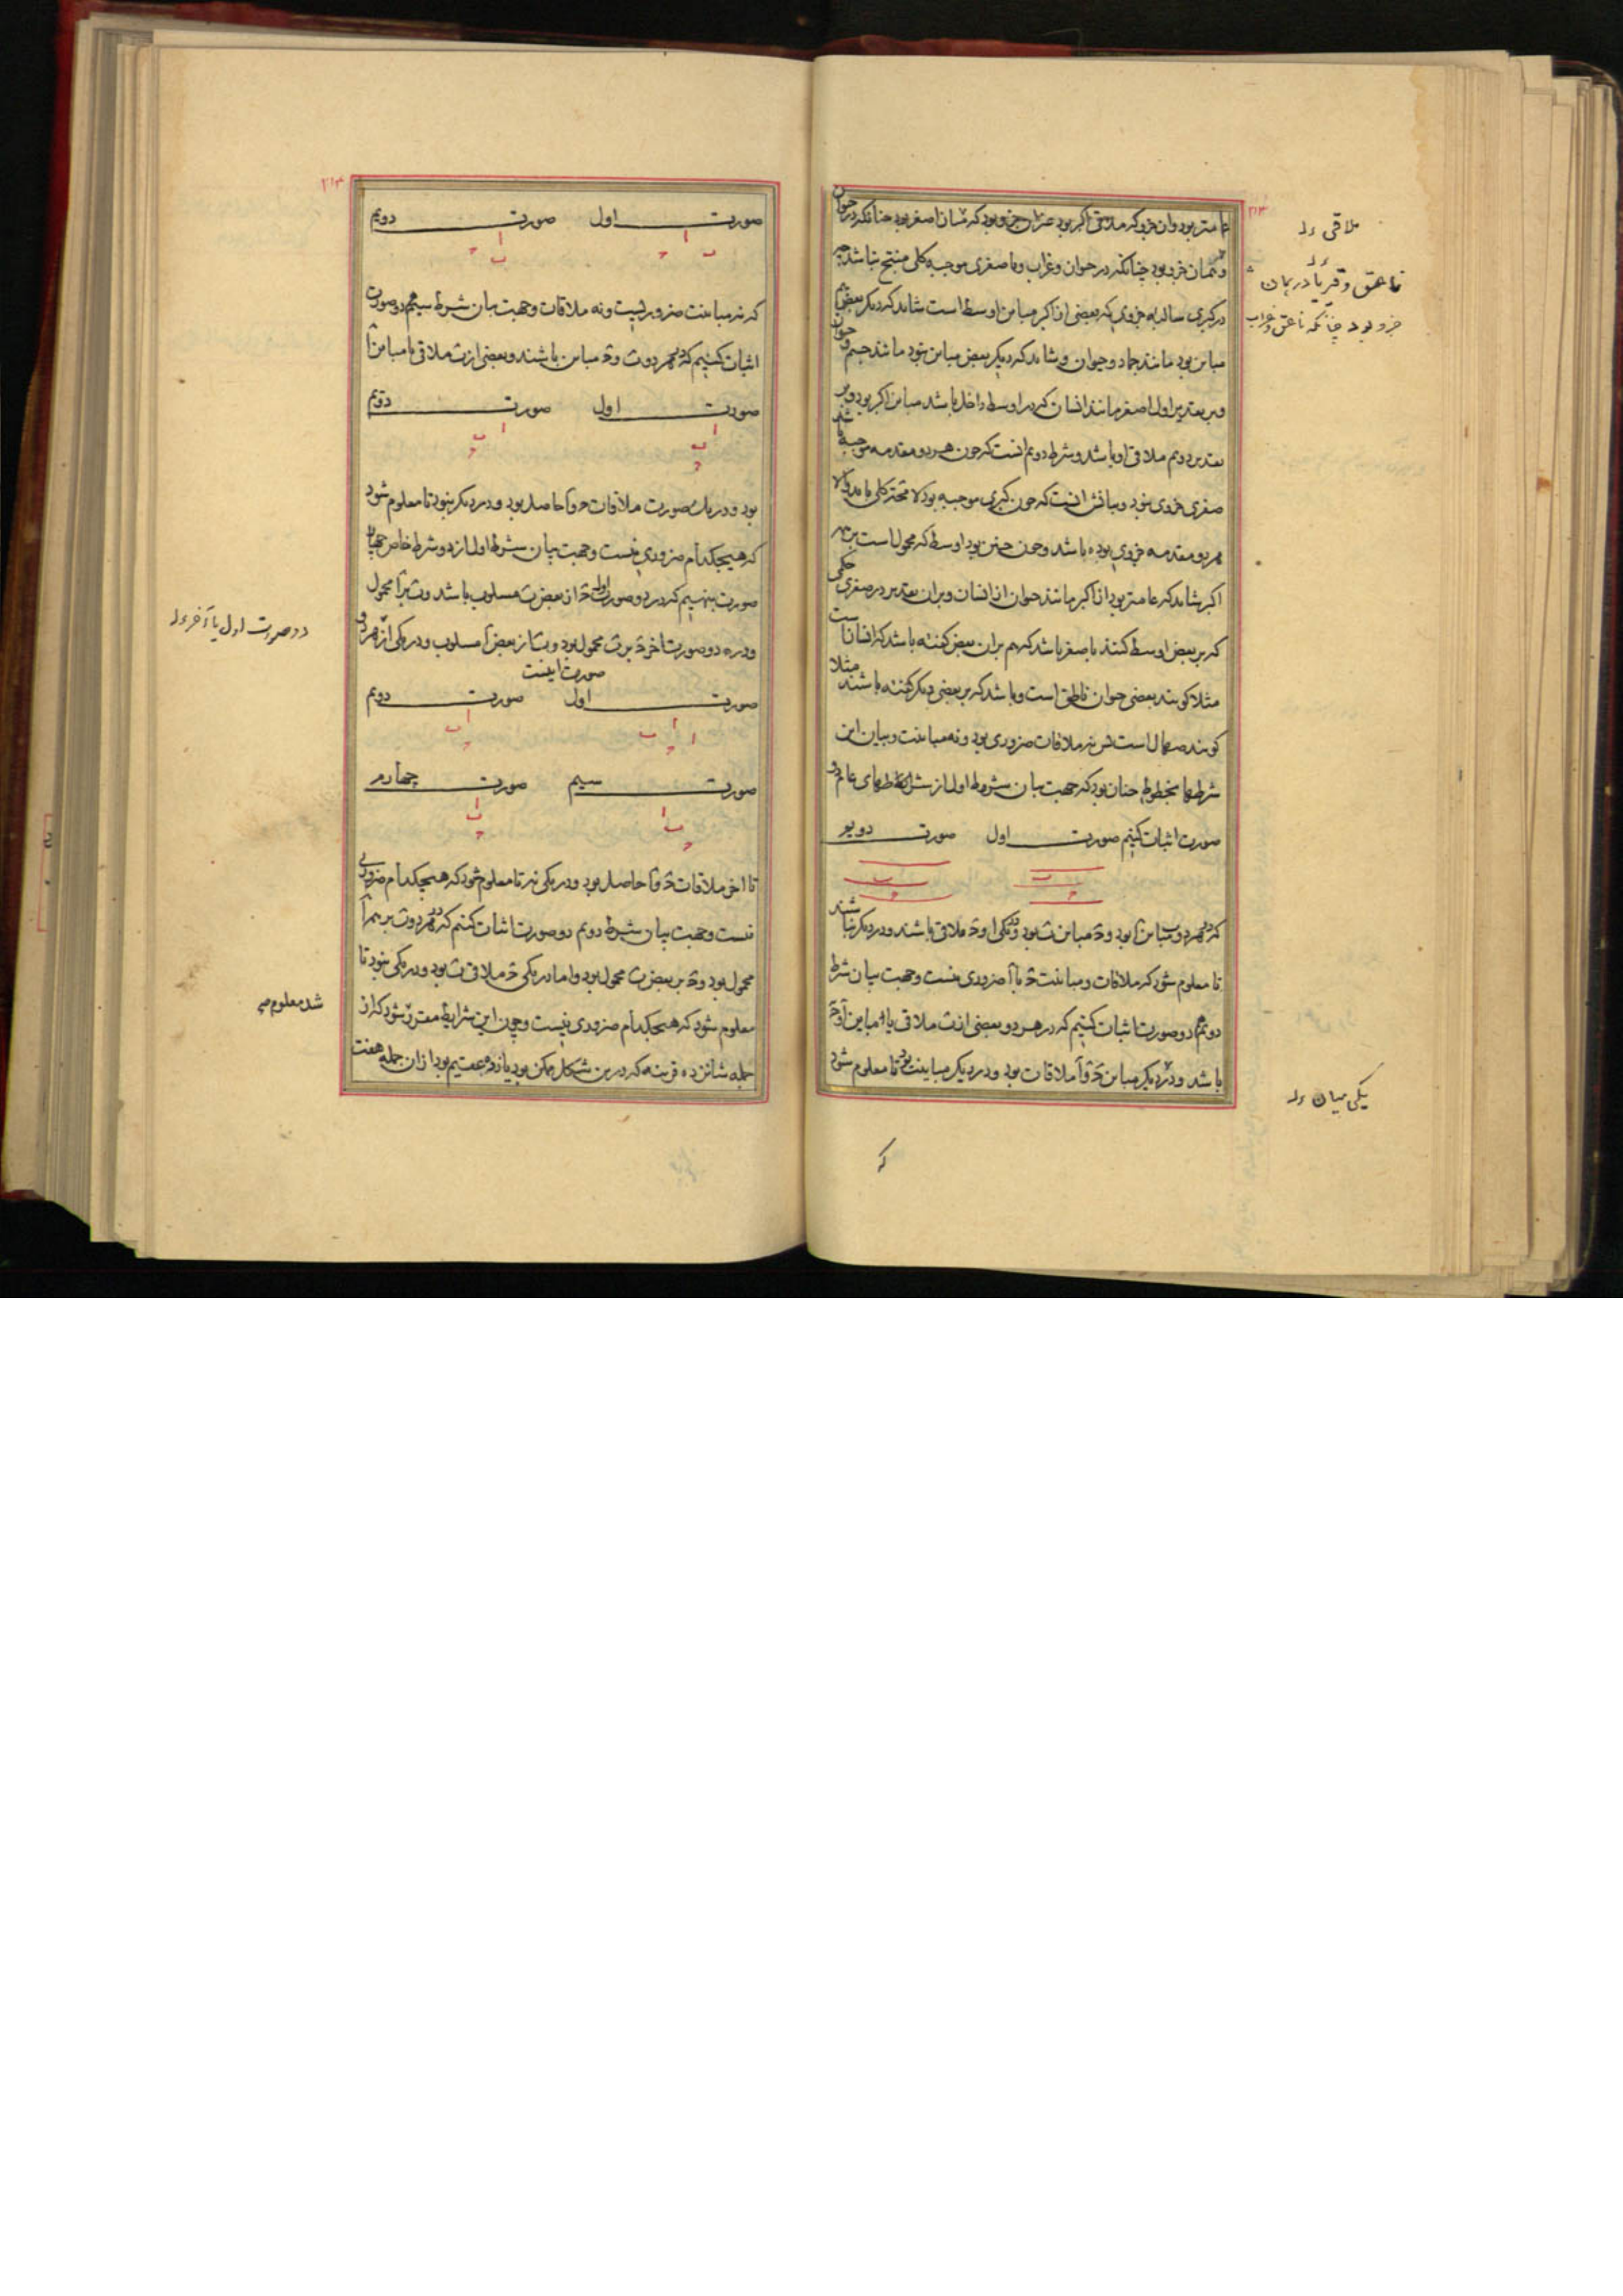 عامتر بود وان جزو که ملاقی اکبر بود غیران جزو بود که مباین اصغر بود چنانکه در حیوان
و همان جزو بود چنانکه در حیوان و غراب و با صغری موجبه کلی منتج نباشد چه
در کبری سالبه جزوی که بعضی از اکبر مباین اوسط است شاید که دیکر بعض هم
مباین بود مانند جماد و حیوان و شاید که دیکر بعض مباین نبود مانند جسم و حیوان
و بر تقدیر اول اصغر مانند انسان که در اوسط داخل باشد مباین اکبر بود و بر
تقدیر دویم ملاقی او باشد و شرط دویم انست که چون هر دو مقدمه موجبه باشد
صغری جزوی نبود و بیانش انست که چون کبری موجبه بود لا محه کلی باید والا
هر دو مقدمه جزوی بوده باشد و چون چنین بود اوسط که محمول است بر همه
اکبر شاید که عامتر بود از اکبر مانند حیوان از انسان و بران تقدیر در صغری حکمی
که بر بعض اوسط کنند باصغر باشد که هم بران بعض کفته باشد که انسانست
مثلا کویند بعضی حیوان ناطق است و باشد که بر بعضی دیکر کفته باشند مثلا
کویند صهال است پس نه ملاقات ضروری بود و نه مباینت و بیان این
شرطها بخطوط چنان بود که جهت بیان شرط اول از شرطهای عام دو
صورت اثبات کنیم صورت اول صورت دویم
ب ب
ج ج
که در هر دو ب مباین آ بود و ج مباین ب بود و در یکی ا و ج ملاقی باشند و در دیکر نباشند
تا معلوم شود که ملاقات و مباینت ج با آ ضروری نیست و جهت بیان شرط
دویم دو صورت اثبات کنیم که در هر دو بعضی از ب ملاقی یا مباین آ و ج
باشد و در دیکر مباین ج و آ ملاقات بود و در دیکر مباینت بود تا معلوم شود
که
ملاقی
ناهق و
جزو بود چنانکه ناعق و غراب
یکی میان
۲۱۳
۲۱۴
صورت اول صورت دویم
ا ا
ب ج ب ج
که نه مباینت ضروریست و نه ملاقات و جهت بیان شرط سیم هم دو صورت
اثبات کنیم که در هر دو ب و ج مباین باشند و بعضی از ب ملاقی یا مباین آ
صورت اول صورت دویم
ا ا
ب ب
ج ج
بود و در یک صورت ملاقات ج و آ حاصل بود و در دیکر نبود تا معلوم شود
که هیچکدام ضروری نیست و جهت بیان شرط اول از دو شرط خاص چهار
صورت بنهیم که در دو صورت اول ج از بعض ب مسلوب باشد و ب بر آ محمول
و در دو صورت اخر ج بر ب محمول بود و ب از بعض آ مسلوب و در یکی از هر دو
صورت اینست
صورت اول صورت دویم
ا ا ا
ب ب
ج ج
صورت سیم صورت چهارم
ا ا
ب ب
ج ج
تا اخر ملاقات ج و آ حاصل بود و در یکی نه تا معلوم شود که هیچکدام ضروری
نیست و جهت بیان شرط دویم دو صورت اثبات کنیم که در هر دو ب بر همه آ
محمول بود و ج بر بعض ب محمول بود و اما در یکی ج ملاقی ب بود و در یکی نبود تا
معلوم شود که هیچکدام ضروری نیست و چون این شرایط مقرر شود که از
جمله شانزده قرینه که درین شکل ممکن بود یازده عقیم بود ازان جمله هفت
دو صورت اول یا آخر
شد معلوم